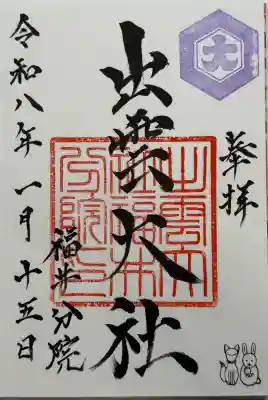 奉拝
出雲大社
福井分院
令和八年一月十五日
大
出雲大
社福井
分院印